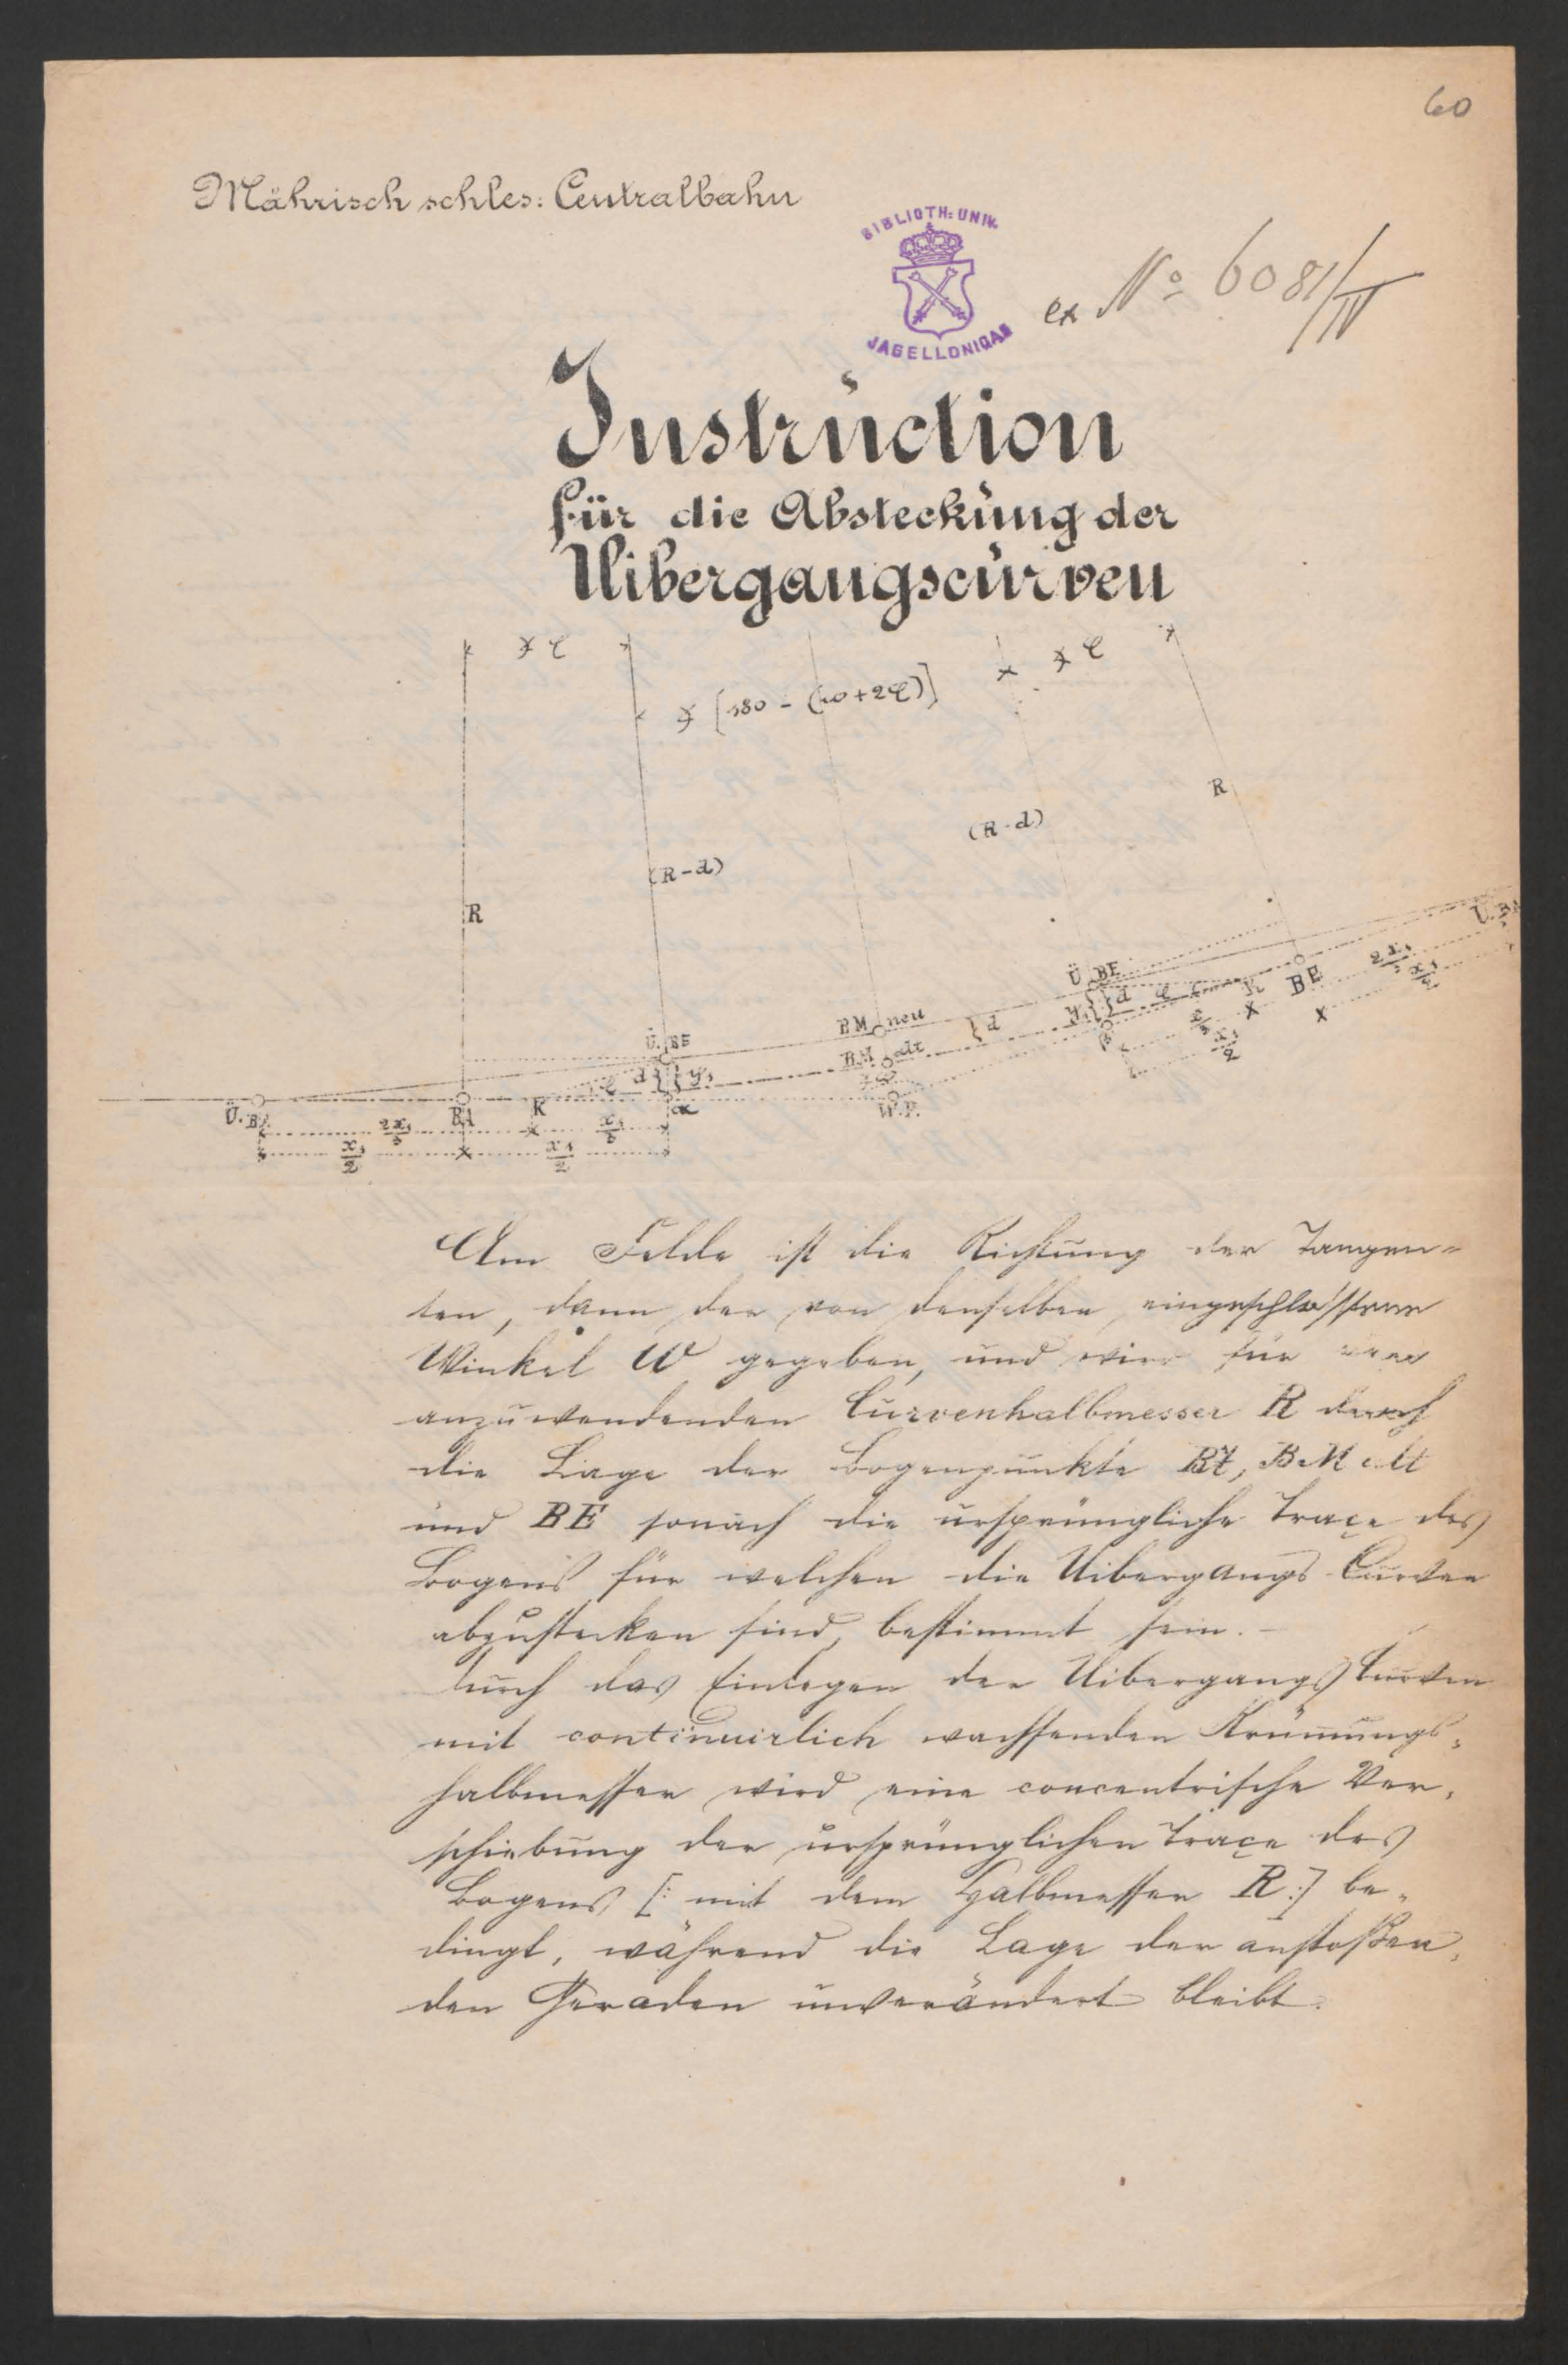 60
Mährisch schles: Centralbahn
BIBLIOTH: UNIV.
JAGELLONICAE
ex No 6081/IV
Instruction
für die Absteckung der
Uibergangscurven
∢ φ
∢ φ
∢ [180 - (w+2φ)]
R
(R-d)
(R-d)
R
Ü.BE
Ü.BE
d
y₁
d φ
K
BE
2x₁
BM neu
d
BM alt
d
y₁
φ
W.P.
Ü.BA
BA
K
α
2x₁
x₁
x₁/2
x₁/2
x₁/2
Am Felde ist die Richtung der Tangen-
ten, dann der von denselben eingeschlossene
Winkel W gegeben, und wird für
anzuwendenden Curvenhalbmesser R durch
die Lage der Bogenpunkte BA, BM alt
und BE sonach die ursprüngliche Traçe des
Bogens für welchen die Uibergangs Curven
abzustecken sind, bestimmt sein. –
Durch das Einlegen der Uibergangs Curven
mit continuirlich wachsenden Krümungs-
halbmesser wird eine concentrische Ver-
schiebung der ursprünglichen Traçe des
Bogens [: mit dem Halbmesser R :] be-
dingt, während die Lage der anstoßen-
den Geraden unverändert bleibt.